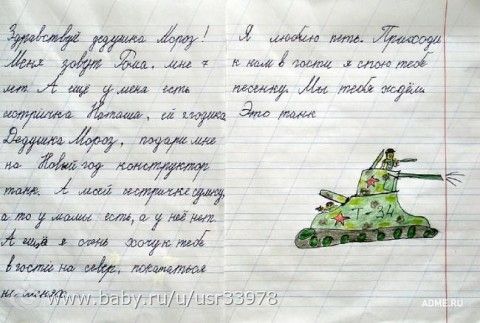 Здравствуй дедушка Мороз!
Меня зовут Рома, мне 7
лет. А ещё у меня есть
сестричка Наташа, ей 2 годика
Дедушка Мороз, подари мне
на Новый год конструктор
танк. А моей сестричке сумку,
а то у мамы есть, а у неё нет.
А ещё я очень хочу к тебе
в гости на север, покататься
на оленях.
Я люблю петь. Приходи
к нам в гости я спою тебе
песенку. Мы тебя ждём.
Это танк
Т-34
www.baby.ru/u/usr33978
ADME.RU